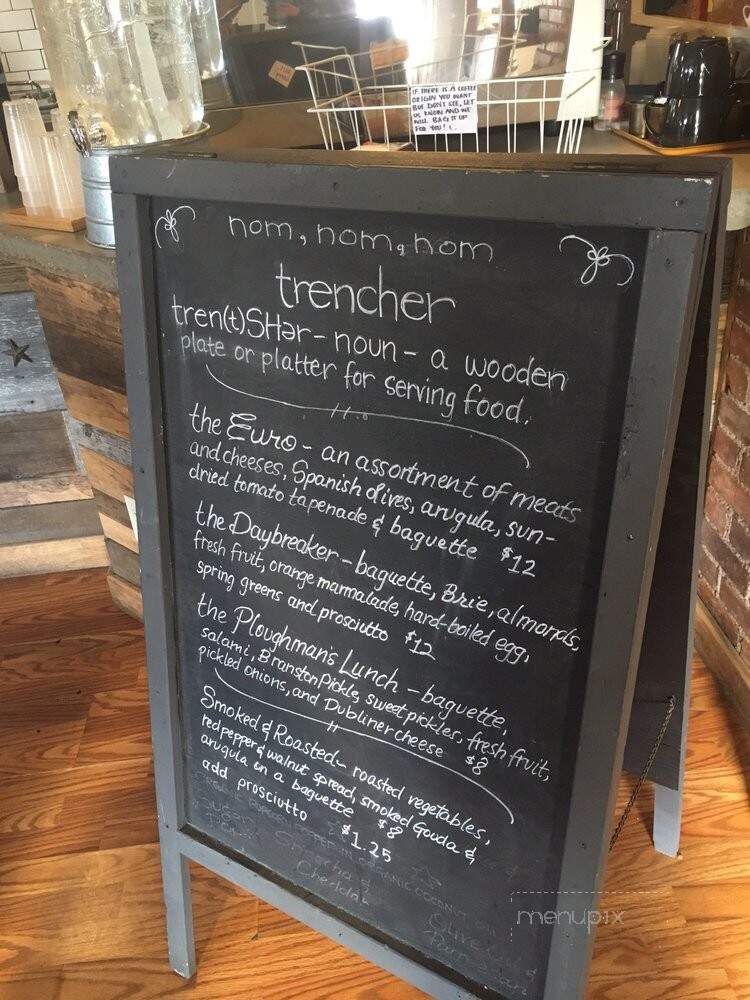 IF THERE IS A COFFEE
ORIGIN YOU WANT
BUT DON'T SEE, LET
US KNOW AND WE
WILL BAG IT UP
FOR YOU! :
nom, nom, nom
trencher
tren(t)SHər - noun - a wooden
plate or platter for serving food.
the Euro - an assortment of meats
and cheeses, Spanish olives, arugula, sun-
dried tomato tapenade & baguette $12
the Daybreaker - baguette, Brie, almonds,
fresh fruit, orange marmalade, hard-boiled egg,
spring greens and prosciutto $12
the Ploughman's Lunch - baguette,
salami, Branston Pickle, sweet pickles, fresh fruit,
pickled onions, and Dubliner cheese $8
Smoked & Roasted - roasted vegetables,
red pepper & walnut spread, smoked Gouda &
arugula on a baguette $8
add prosciutto $1.25
ORGANIC COCONUT
Cheddar
menupix